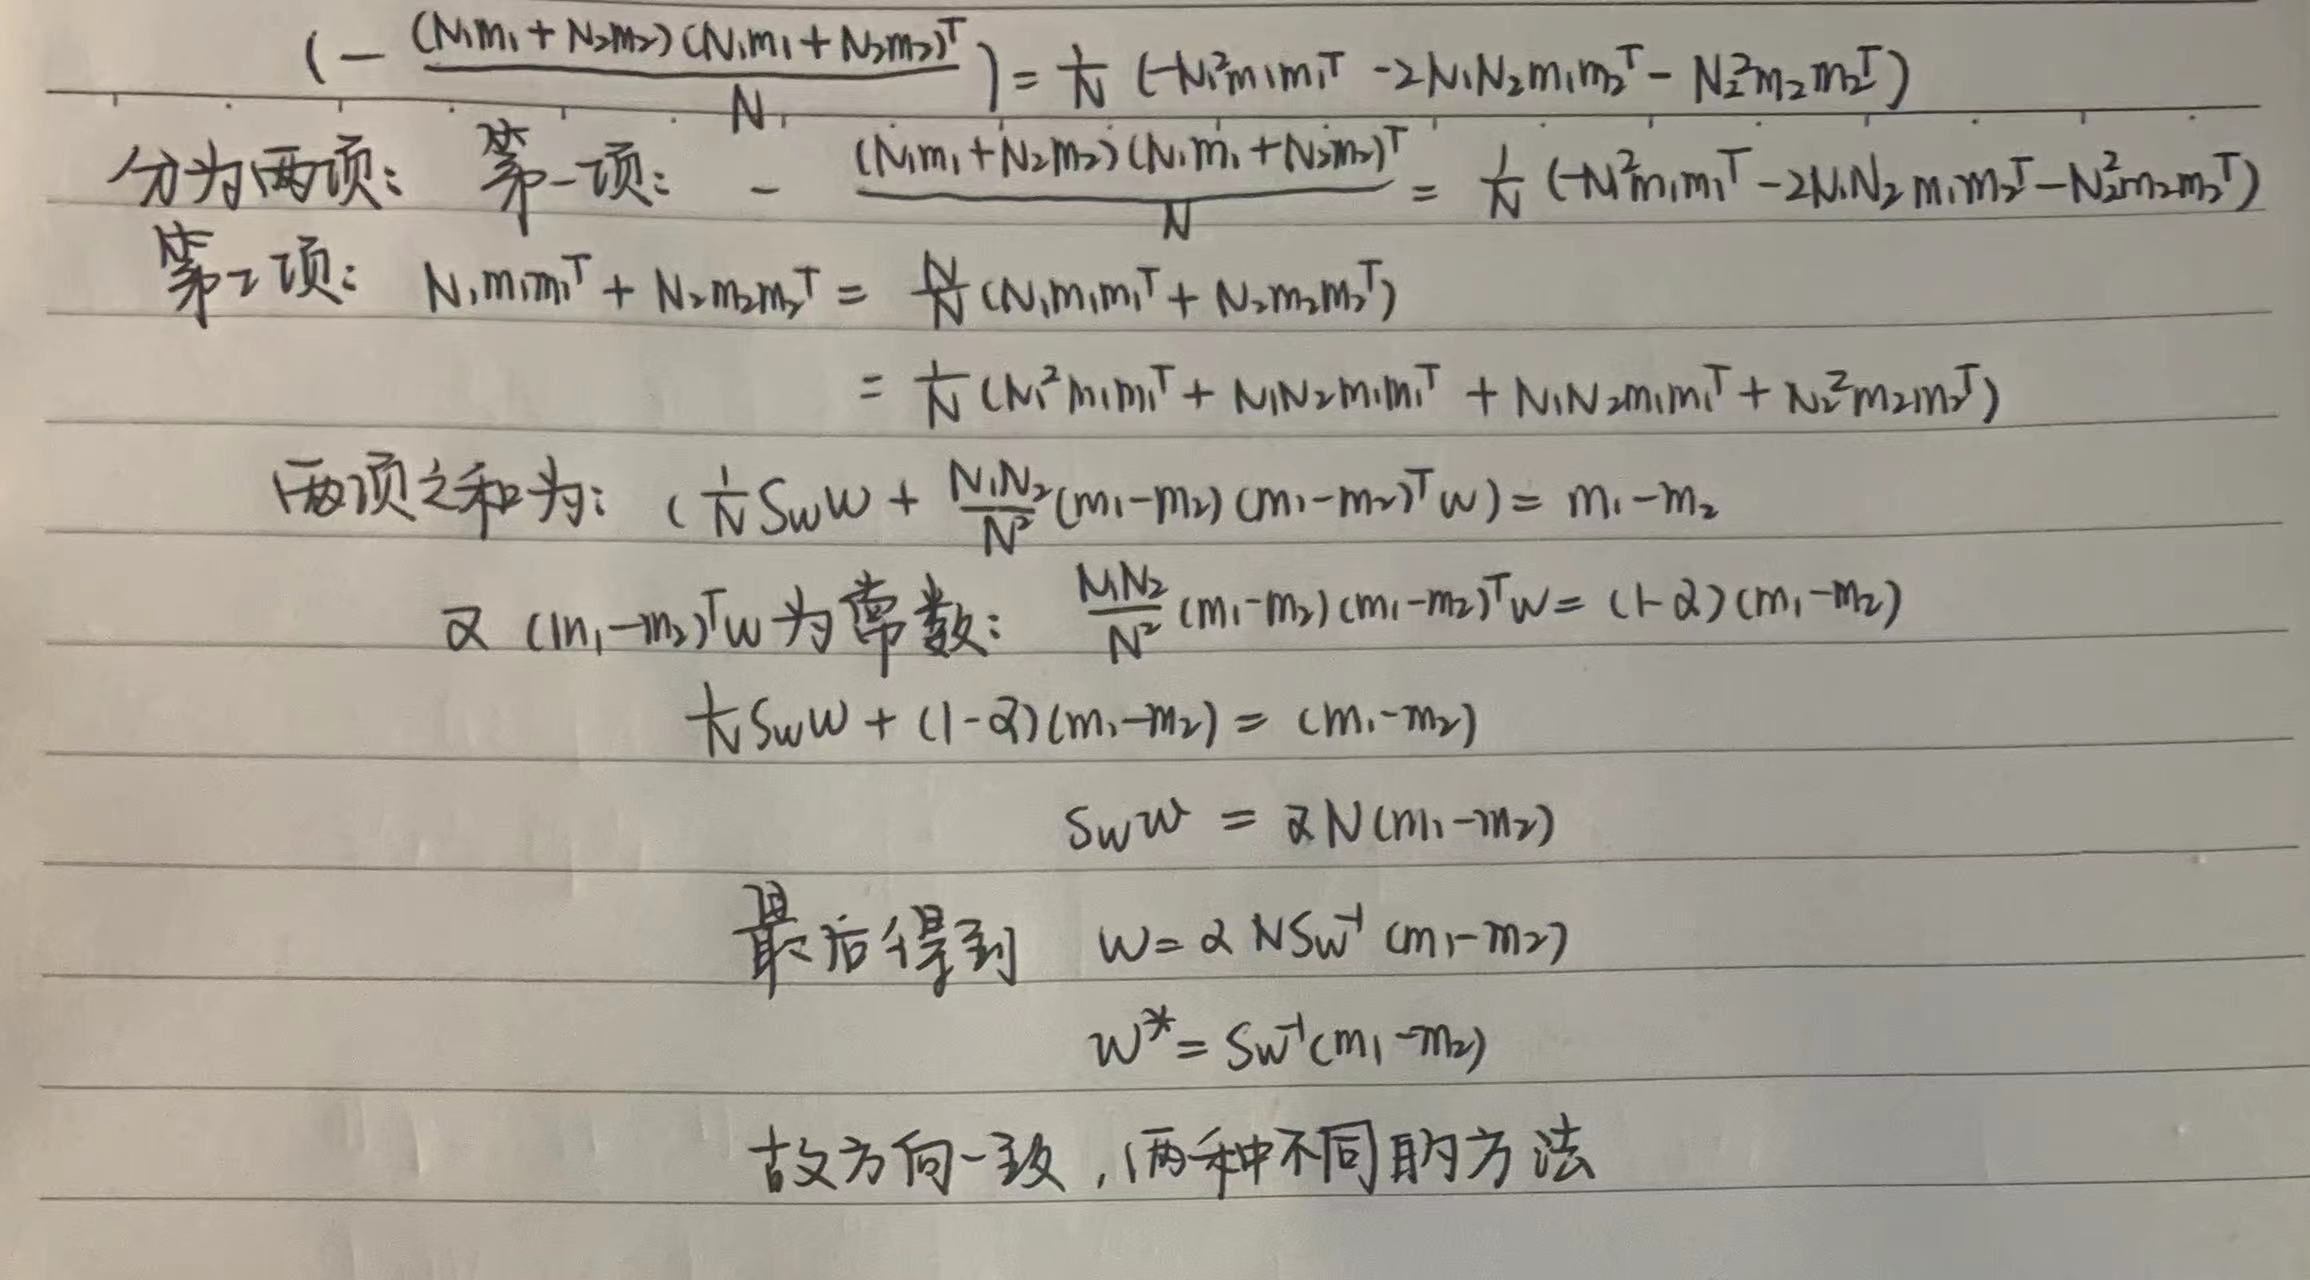 (- (N₁m₁+N₂m₂)(N₁m₁+N₂m₂)ᵀ / N) = 1/N (-N₁²m₁m₁ᵀ - 2N₁N₂m₁m₂ᵀ - N₂²m₂m₂ᵀ)
分为两项: 第一项: - (N₁m₁+N₂m₂)(N₁m₁+N₂m₂)ᵀ / N = 1/N (-N₁²m₁m₁ᵀ - 2N₁N₂m₁m₂ᵀ - N₂²m₂m₂ᵀ)
第2项: N₁m₁m₁ᵀ + N₂m₂m₂ᵀ = N/N (N₁m₁m₁ᵀ + N₂m₂m₂ᵀ)
= 1/N (N₁²m₁m₁ᵀ + N₁N₂m₁m₁ᵀ + N₁N₂m₁m₁ᵀ + N₂²m₂m₂ᵀ)
两项之和为: (1/N SwW + N₁N₂/N² (m₁-m₂)(m₁-m₂)ᵀw) = m₁-m₂
又 (m₁-m₂)ᵀw为常数: N₁N₂/N² (m₁-m₂)(m₁-m₂)ᵀw = (1-α)(m₁-m₂)
1/N SwW + (1-α)(m₁-m₂) = (m₁-m₂)
Sww = αN(m₁-m₂)
最后得到 W = αNSw⁻¹(m₁-m₂)
w* = Sw⁻¹(m₁-m₂)
故方向一致,两种不同的方法